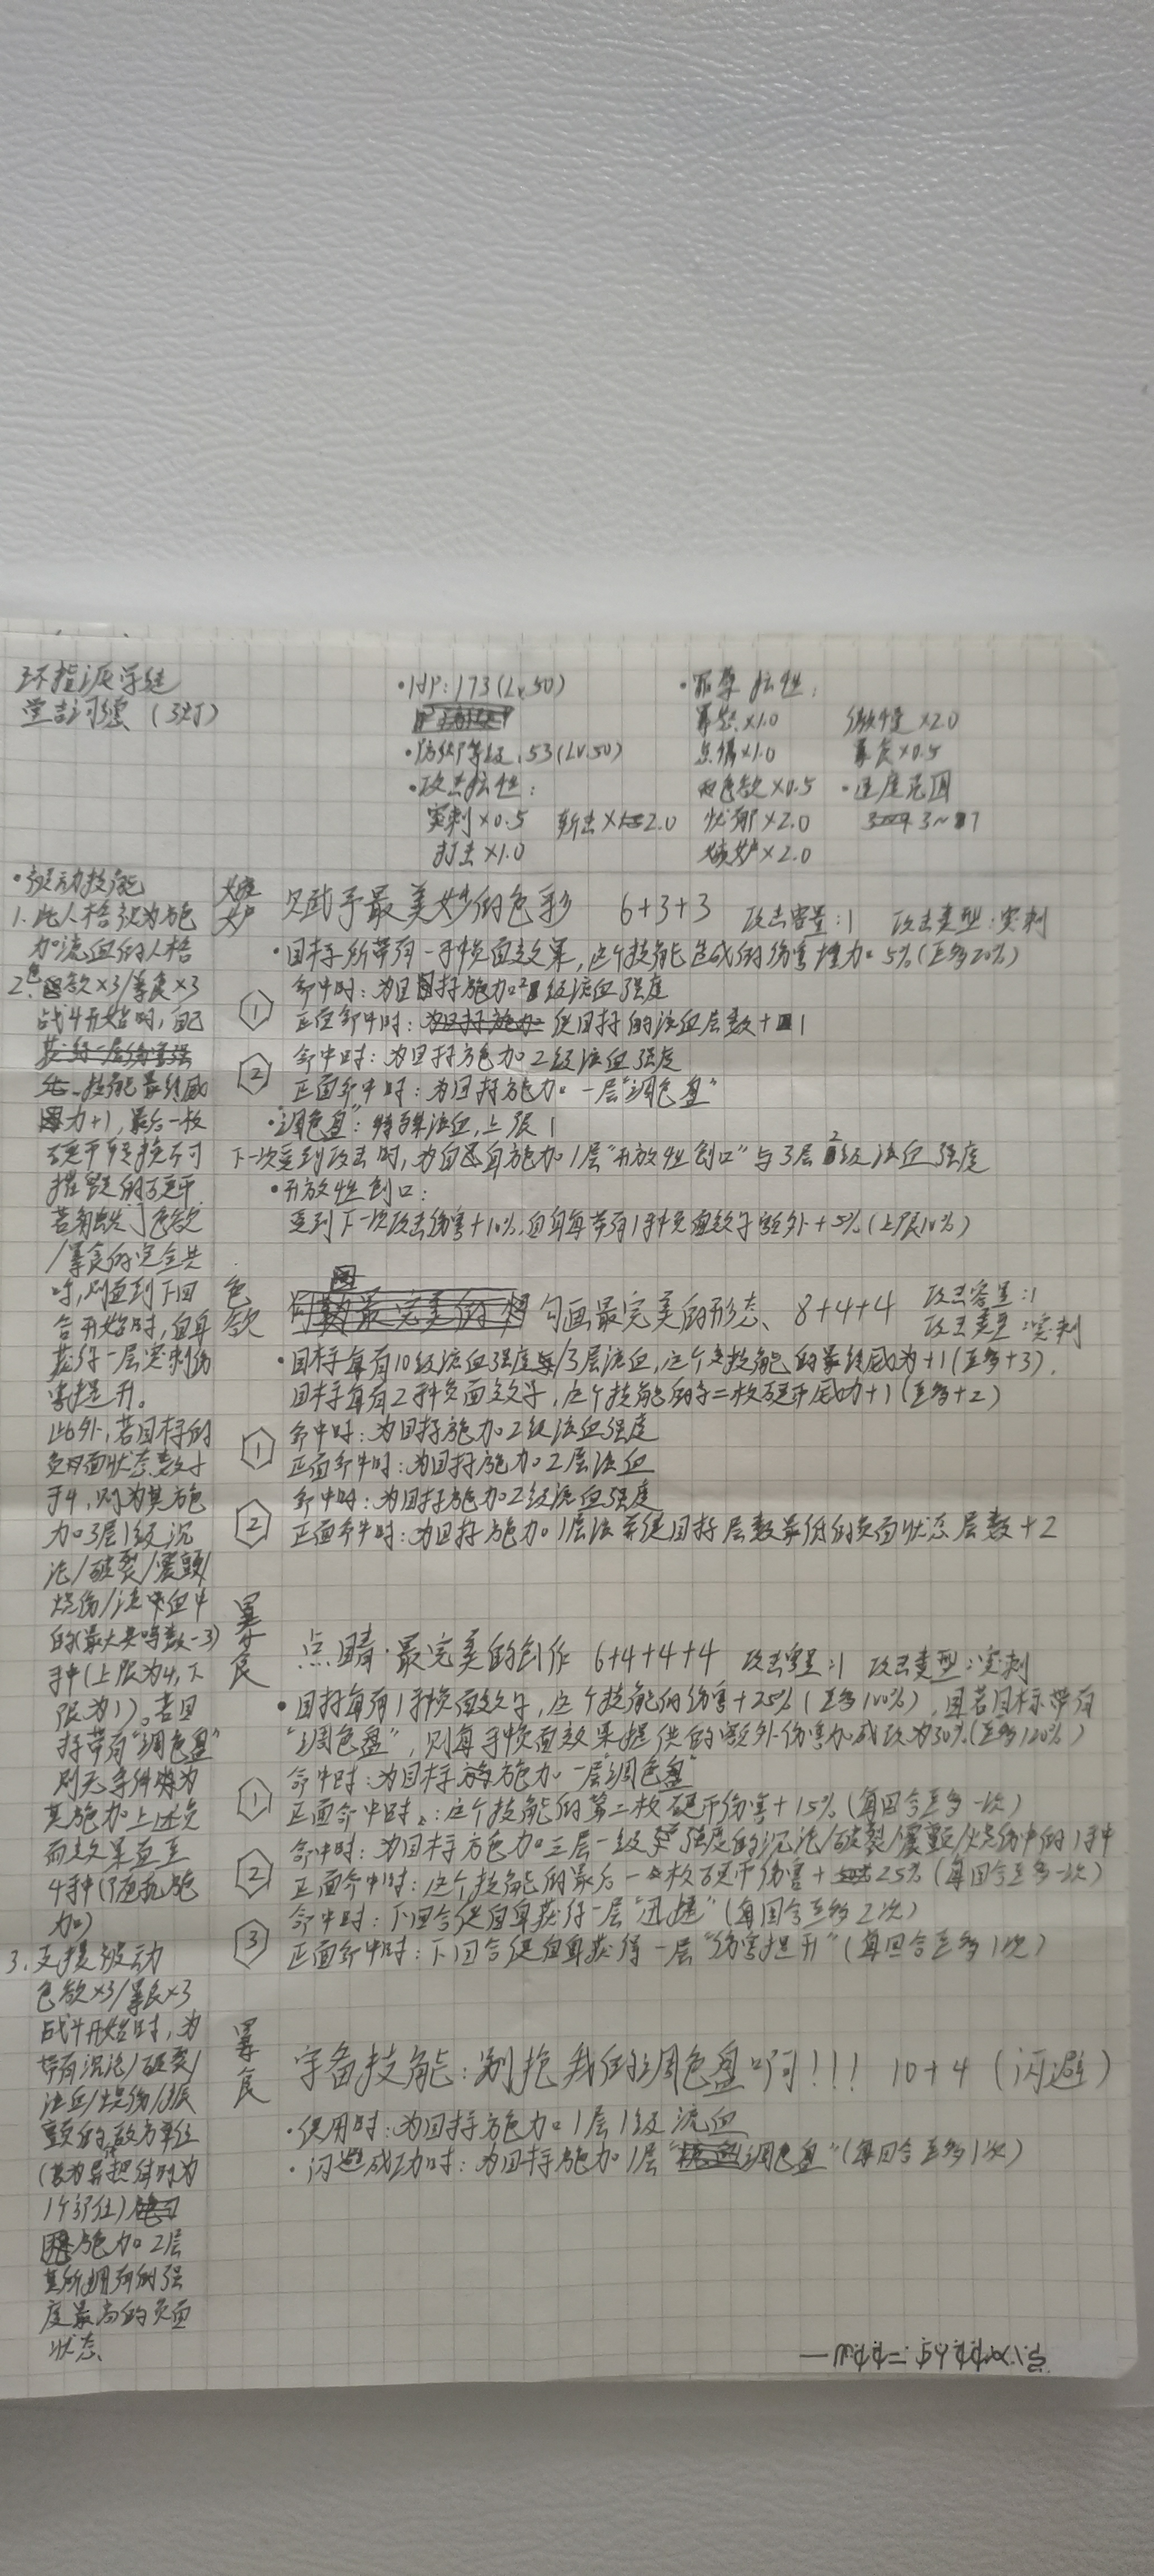 环指派学徒
堂吉诃德（3灯）
·HP：173（Lv.50）
·防御等级：53（LV.50）
·攻击抗性：
突刺×0.5 斩击×2.0
打击×1.0
·罪孽抗性：
×1.0 傲慢×2.0
×1.0 暴食×0.5
色欲×0.5 ·速度范围
忧郁×2.0 3~7
嫉妒×2.0
·被动技能
1.此人格视为施
加流血的人格
2.色欲×3/暴食×3
战斗开始时，自己
技能最终威
力+1，最后一枚
硬币转换不可
摧毁的硬币
若触发了色欲
/暴食的完全共
鸣，则直到下回
合开始时，自身
获得一层突刺伤
害提升。
此外，若目标的
负面状态数少
于4，则为其施
加3层1级沉
沦/破裂/震颤/
烧伤/流血中
的(最大共鸣数-3)
种（上限为4，下
限为1）。若目
标带有“调色盘”
则无条件为
其施加上述负
面效果直至
4种（施
加）
3.支援被动
色欲×3/暴食×3
战斗开始时，为
带有沉沦/破裂/
流血/烧伤/振
颤的敌方单位
（若为异想体时为
1个部位）
施加2层
其所拥有的强
度最高的负面
状态
嫉妒
赋予最美妙的色彩 6+3+3 攻击容量：1 攻击类型：突刺
·目标所带有一种负面效果，这个技能造成的伤害增加5%（至多20%）
① 命中时：为目标施加2级流血强度
正面命中时：使目标的流血层数+1
② 命中时：为目标施加2级流血强度
正面命中时：为目标施加一层“调色盘”
·“调色盘”：特殊流血，上限1
下一次受到攻击时，为自身施加1层“开放性创口”与3层2级流血强度
·开放性创口：
受到下一次攻击伤害+10%，自身每带有1种负面效果额外+5%（上限10%）
色欲
勾画最完美的形态、 8+4+4 攻击容量：1
攻击类型：突刺
·目标每有10级流血强度/3层流血，这个技能的最终威力+1（至多+3）.
目标每有2种负面效果，这个技能的第二枚硬币威力+1（至多+2）
① 命中时：为目标施加2级流血强度
正面命中时：为目标施加2层流血
② 命中时：为目标施加2级流血强度
正面命中时：为目标施加1层流血并使目标层数最低的负面状态层数+2
暴食
点睛·最完美的创作 6+4+4+4 攻击容量：1 攻击类型：突刺
·目标每有1种负面效果，这个技能的伤害+25%（至多100%），且若目标带有
“调色盘”，则每种负面效果提供的额外伤害加成改为30%（至多120%）
① 命中时：为目标施加一层“调色盘”
正面命中时：这个技能的第二枚硬币伤害+15%（每回合至多一次）
② 命中时：为目标施加三层一级强度的沉沦/破裂/震颤/烧伤中的1种
正面命中时：这个技能的最后一枚硬币伤害+25%（每回合至多一次）
③ 命中时：下回合使自身获得一层“迅捷”（每回合至多2次）
正面命中时：下回合使自身获得一层“伤害提升”（每回合至多1次）
暴食
守备技能：别抢我的调色盘啊！！！ 10+4（闪避）
·使用时：为目标施加1层1级流血
·闪避成功时：为目标施加1层“调色盘”（每回合至多1次）